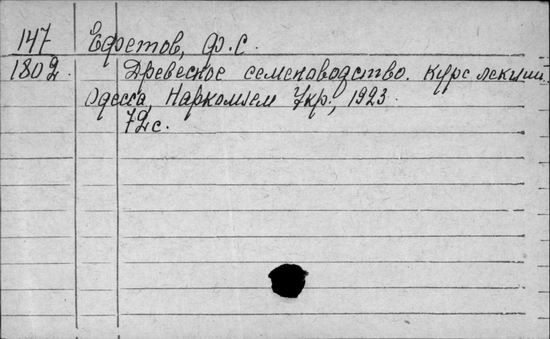 147 Ефетов, Ф.С.
1802 Древесное семеноводство. Курс лекции.
Одесса, Наркомзем Укр., 1923.
72 с.